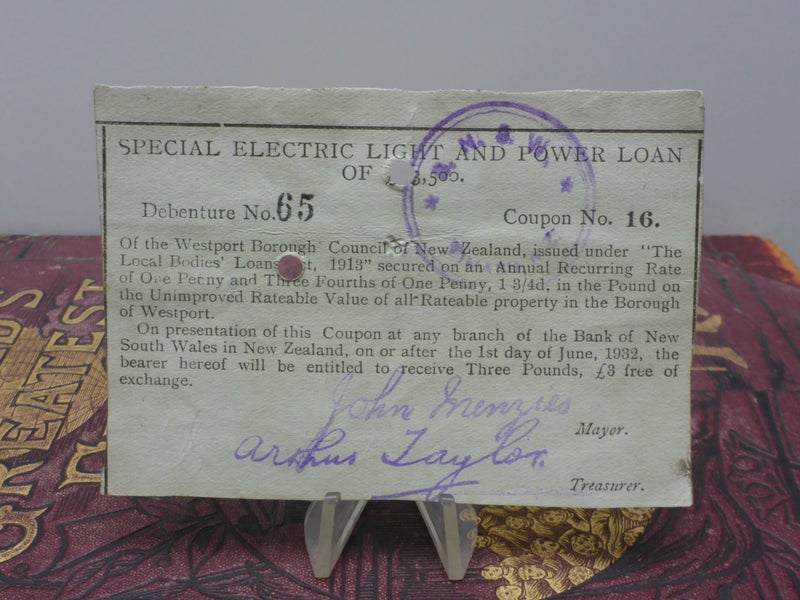 SPECIAL ELECTRIC LIGHT AND POWER LOAN
OF 3,500.
Debenture No. 65
Coupon No. 16.
N. S. W.
Of the Westport Borough Council of New Zealand, issued under "The
Local Bodies' Loans 1913" secured on an Annual Recurring Rate
of One Penny and Three Fourths of One Penny, 1 3/4d, in the Pound on
the Unimproved Rateable Value of all Rateable property in the Borough
of Westport.
On presentation of this Coupon at any branch of the Bank of New
South Wales in New Zealand, on or after the 1st day of June, 1932, the
bearer hereof will be entitled to receive Three Pounds, £3 free of
exchange.
John Menzies
Mayor.
Arthur Taylor.
Treasurer.